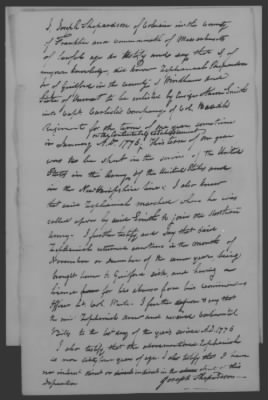 I, Joseph Shepardson of Colrain in the County
of Franklin and commonwealth of Massachusetts
of lawful age do testify and say that I of
my own knowledge, did know Zephaniah Shepardson
of Guilford in the County of Windham and
State of Vermont to be enlisted by Ensign Smith
into Capt. company of Col.
Regiment for the term of one year sometime
in January A.D. 1776. This term of one year
was to be spent in the service of the United
States in the Army of the United States and
in the New Hampshire line; I also know
that said Zephaniah marched when he was
called upon by said Smith to join the Northern
army. I further testify and say that said
Zephaniah returned sometime in the month of
November or December of the same year being
brought home to Guilford sick and having a
for his absence from his commanding
officer Lt. Col. I further say that
the said Zephaniah
to the day of the year A.D. 1776
I also testify that the Zephaniah
is now sixty four years of age. I also testify that I have
nor interest direct or indirect in the of this
Deposition Joseph Shepardson